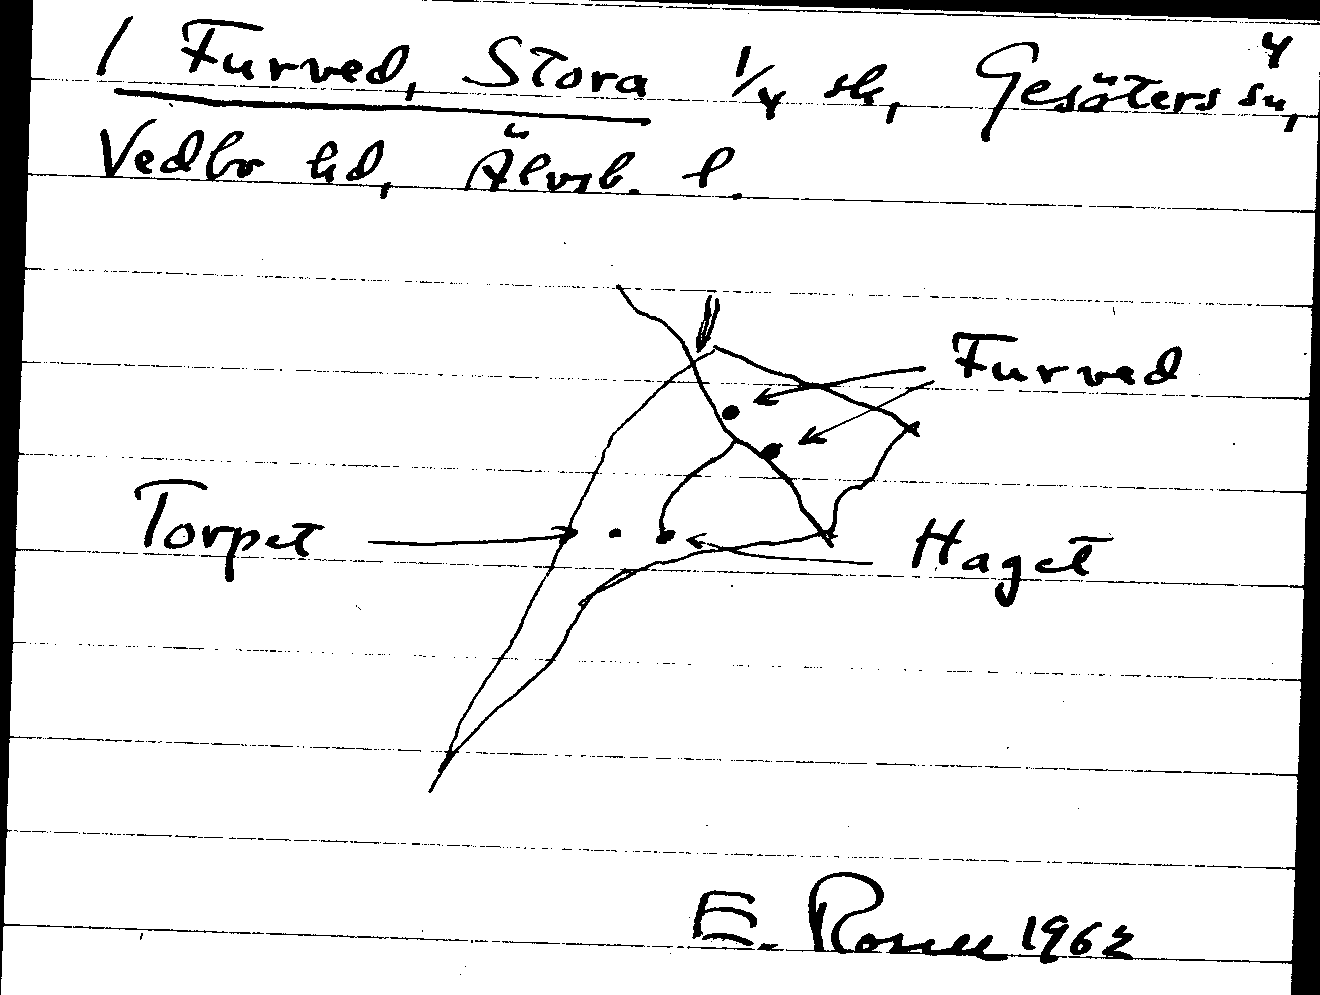 4
1 Furved, Stora 1/4 sk, Gesäters sn,
Vedbo hd, Älvsb. l.
Furved
Torpet
Haget
E. Rosell 1962